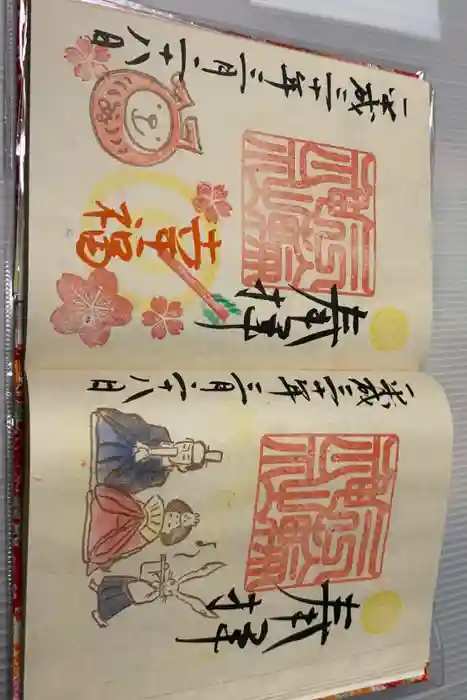 奉拝
平成三十年三月二十八日
奉拝
幸福
平成三十年三月二十八日